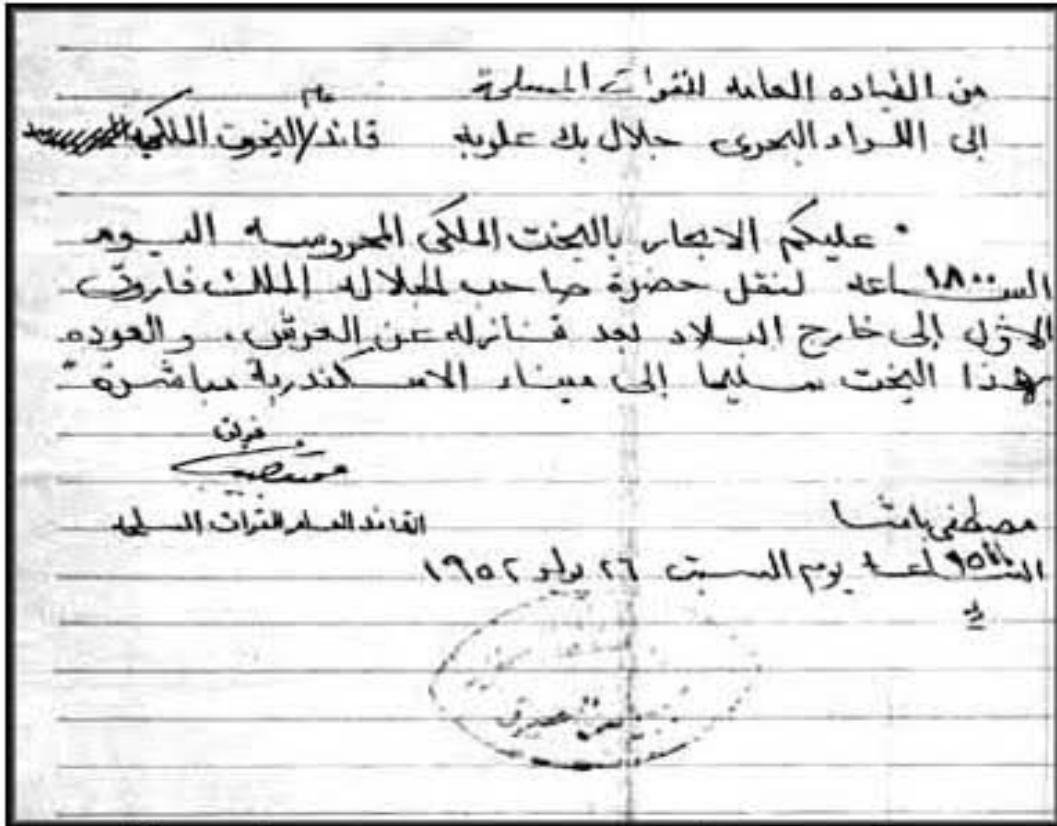 من القياده العامه للقوات المسلحة
إلى اللواء البحرى جلال بك علوبه قائد عام / اليخوت الملكيه
عليكم الابحار باليخت الملكى المحروسه اليوم
الساعه ١٨٠٠ لنقل حضرة صاحب الجلاله الملك فاروق
الاول إلى خارج البلاد بعد تنازله عن العرش، والعوده
بهذا اليخت سليما إلى ميناء الاسكندرية مباشرة
فريق
محمد نجيب
القائد العام للقوات المسلحه
مصطفى باشا
الساعه يوم السبت ٢٦ يوليو ١٩٥٢